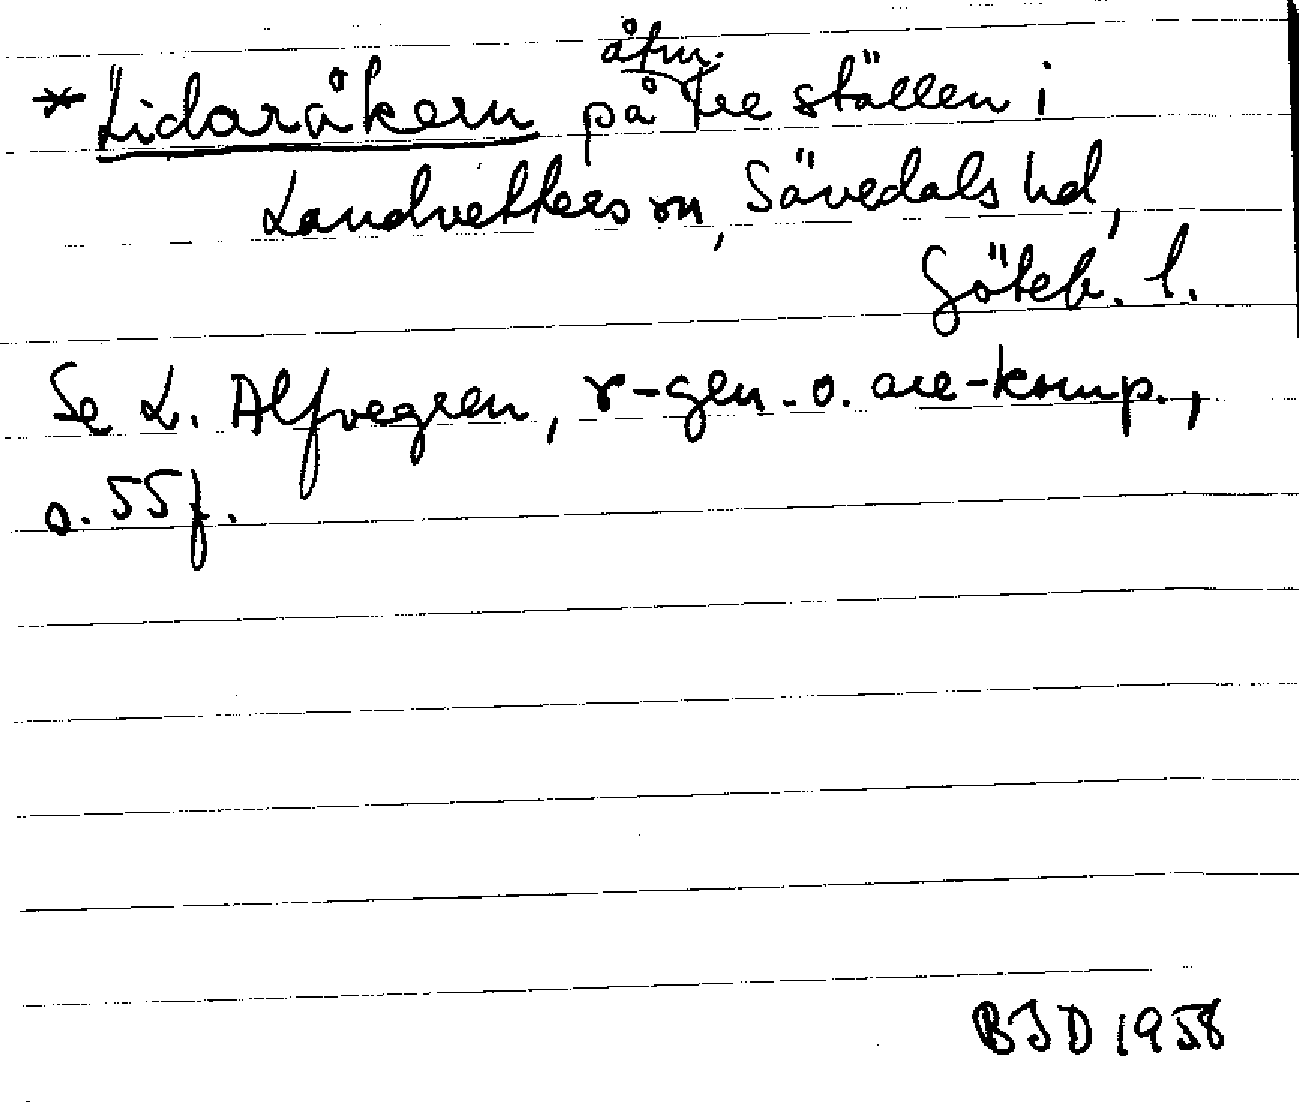 åfm.
* Lidaråkern på tre ställen i
Landvetters sn, Sävedals hd,
Göteb. l.
Se L. Alfvegren, r-gen. o. are-komp.,
s. 55f.
BJD 1958